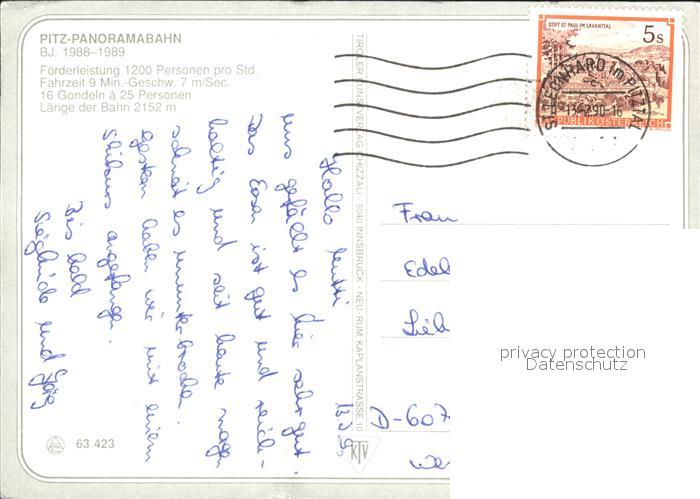 PITZ-PANORAMABAHN
BJ. 1988–1989
Förderleistung 1200 Personen pro Std.
Fahrzeit 9 Min.-Geschw. 7 m/Sec.
16 Gondeln à 25 Personen
Länge der Bahn 2152 m
63 423
TIROLER KUNSTVERLAG CHIZZALI · 6040 INNSBRUCK · NEU-RUM, KAPLANSTRASSE 10
KTV
STIFT ST. PAUL IM LAVANTTAL
5s
REPUBLIK ÖSTERREICH
ST. LEONHARD im PITZTAL
90-16
Hallo Mutti
uns gefällt es hier sehr gut.
Das Essen ist gut und reich-
haltig und seit heute morgen
schneit es ununterbrochen.
Gestern haben wir mit einem
Skikurs angefangen.
Bis bald
Sieglinde und Jörg
Frau
Edel
Lieb
D-607
privacy protection
Datenschutz